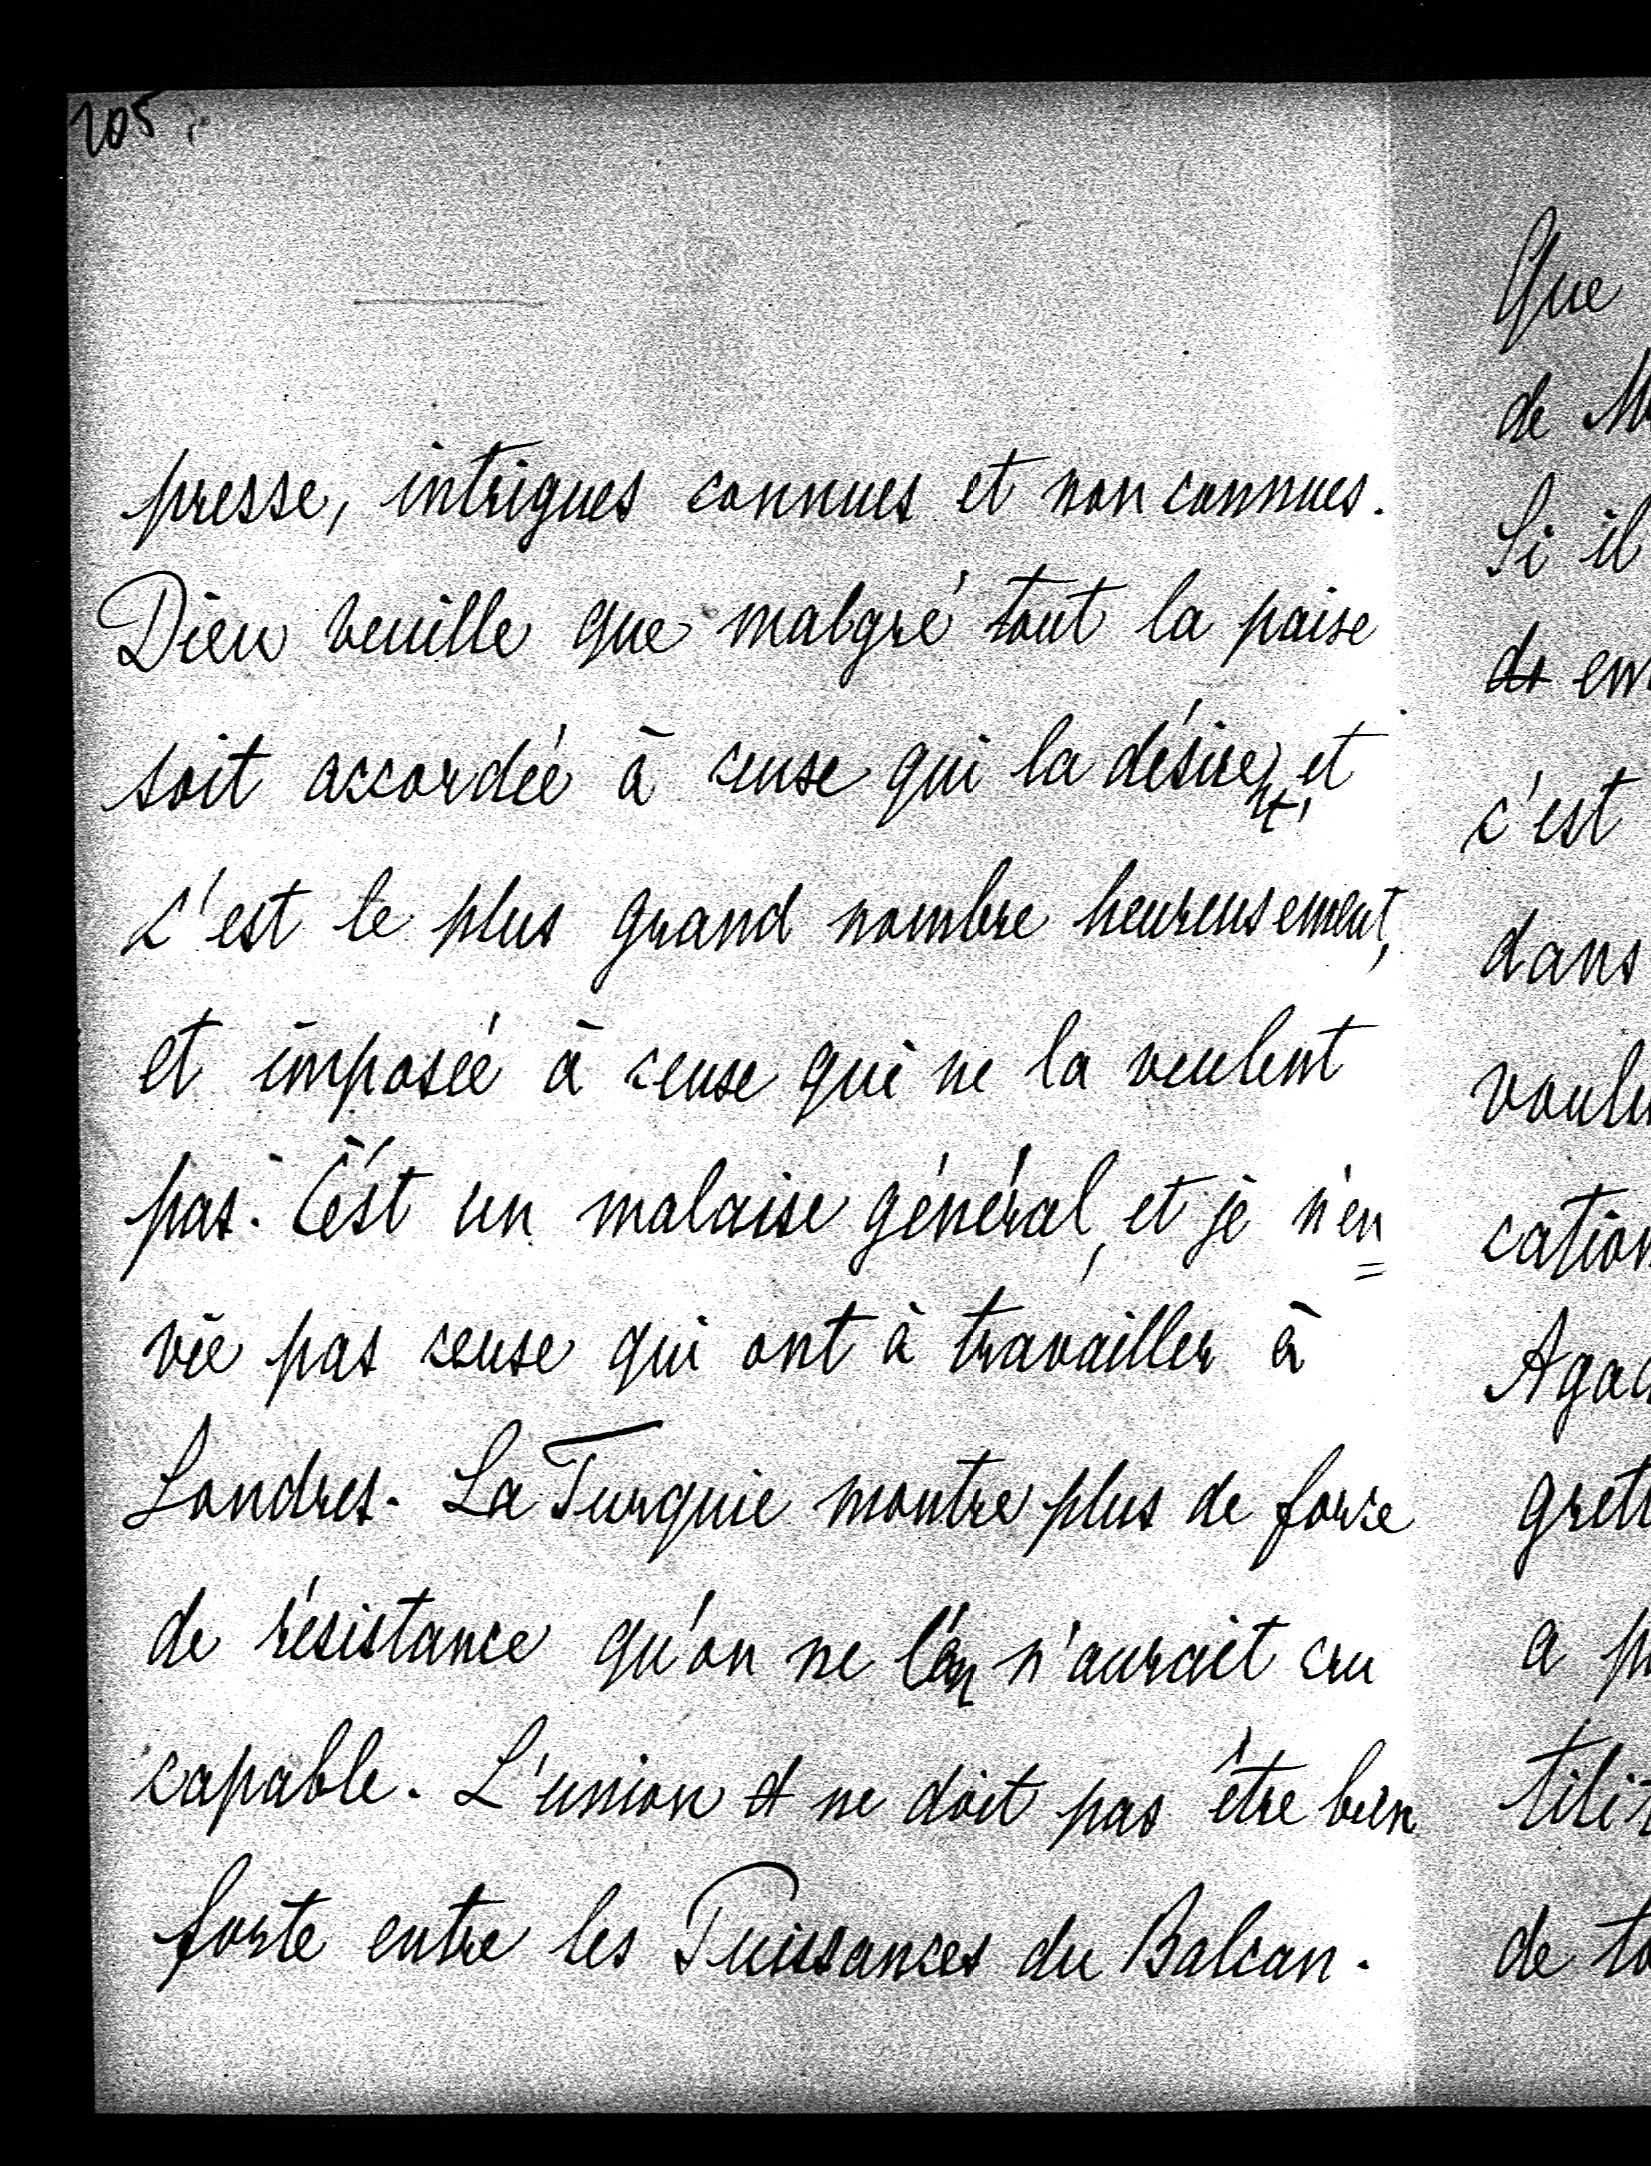 205
presse, intrigues connues et non connues.
Dieu veuille que malgré tout la paix
soit accordée à ceux qui la désirent, et
c'est le plus grand nombre heureusement,
et imposée à ceux qui ne la veulent
pas. C'est un malaise général, et je n'en=
vie pas ceux qui ont à travailler à
Londres. La Turquie montre plus de force
de résistance qu'on ne l'en n'aurait cru
capable. L'union ne doit pas être bien
forte entre les Puissances du Balcan.
Que
de
Si il
c'est
dans
a
de